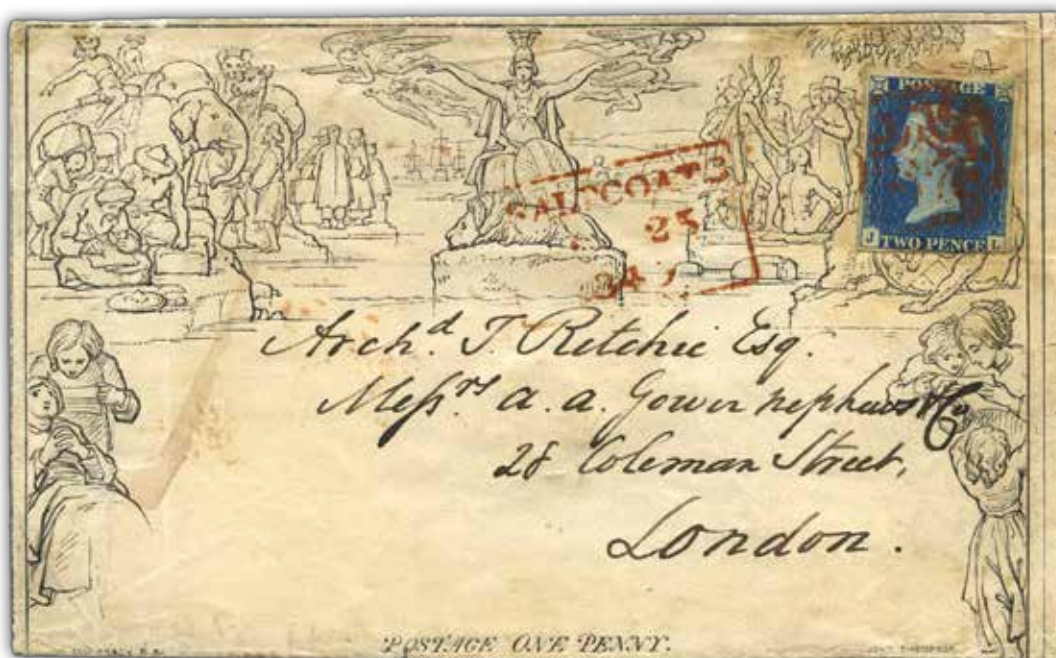 POSTAGE
J TWO PENCE L
SALTCOATS
25
Arch.d T. Ritchie Esq.
Messrs A. A. Gower nephews & Co
28 Coleman Street,
London.
POSTAGE ONE PENNY.
JOHN THOMPSON